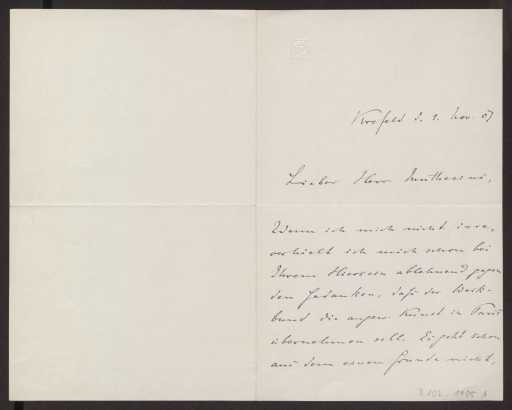 Krefeld d. 1. Nov. 07
Lieber Herr Muthesius,
Wenn ich mich nicht irre,
verhielt ich mich schon bei
Ihrem Hiersein ablehnend gegen
den Gedanken, daß der Werk-
bund die angew. Kunst in Paris
übernehmen soll. Es geht schon
aus dem einen Grunde nicht,